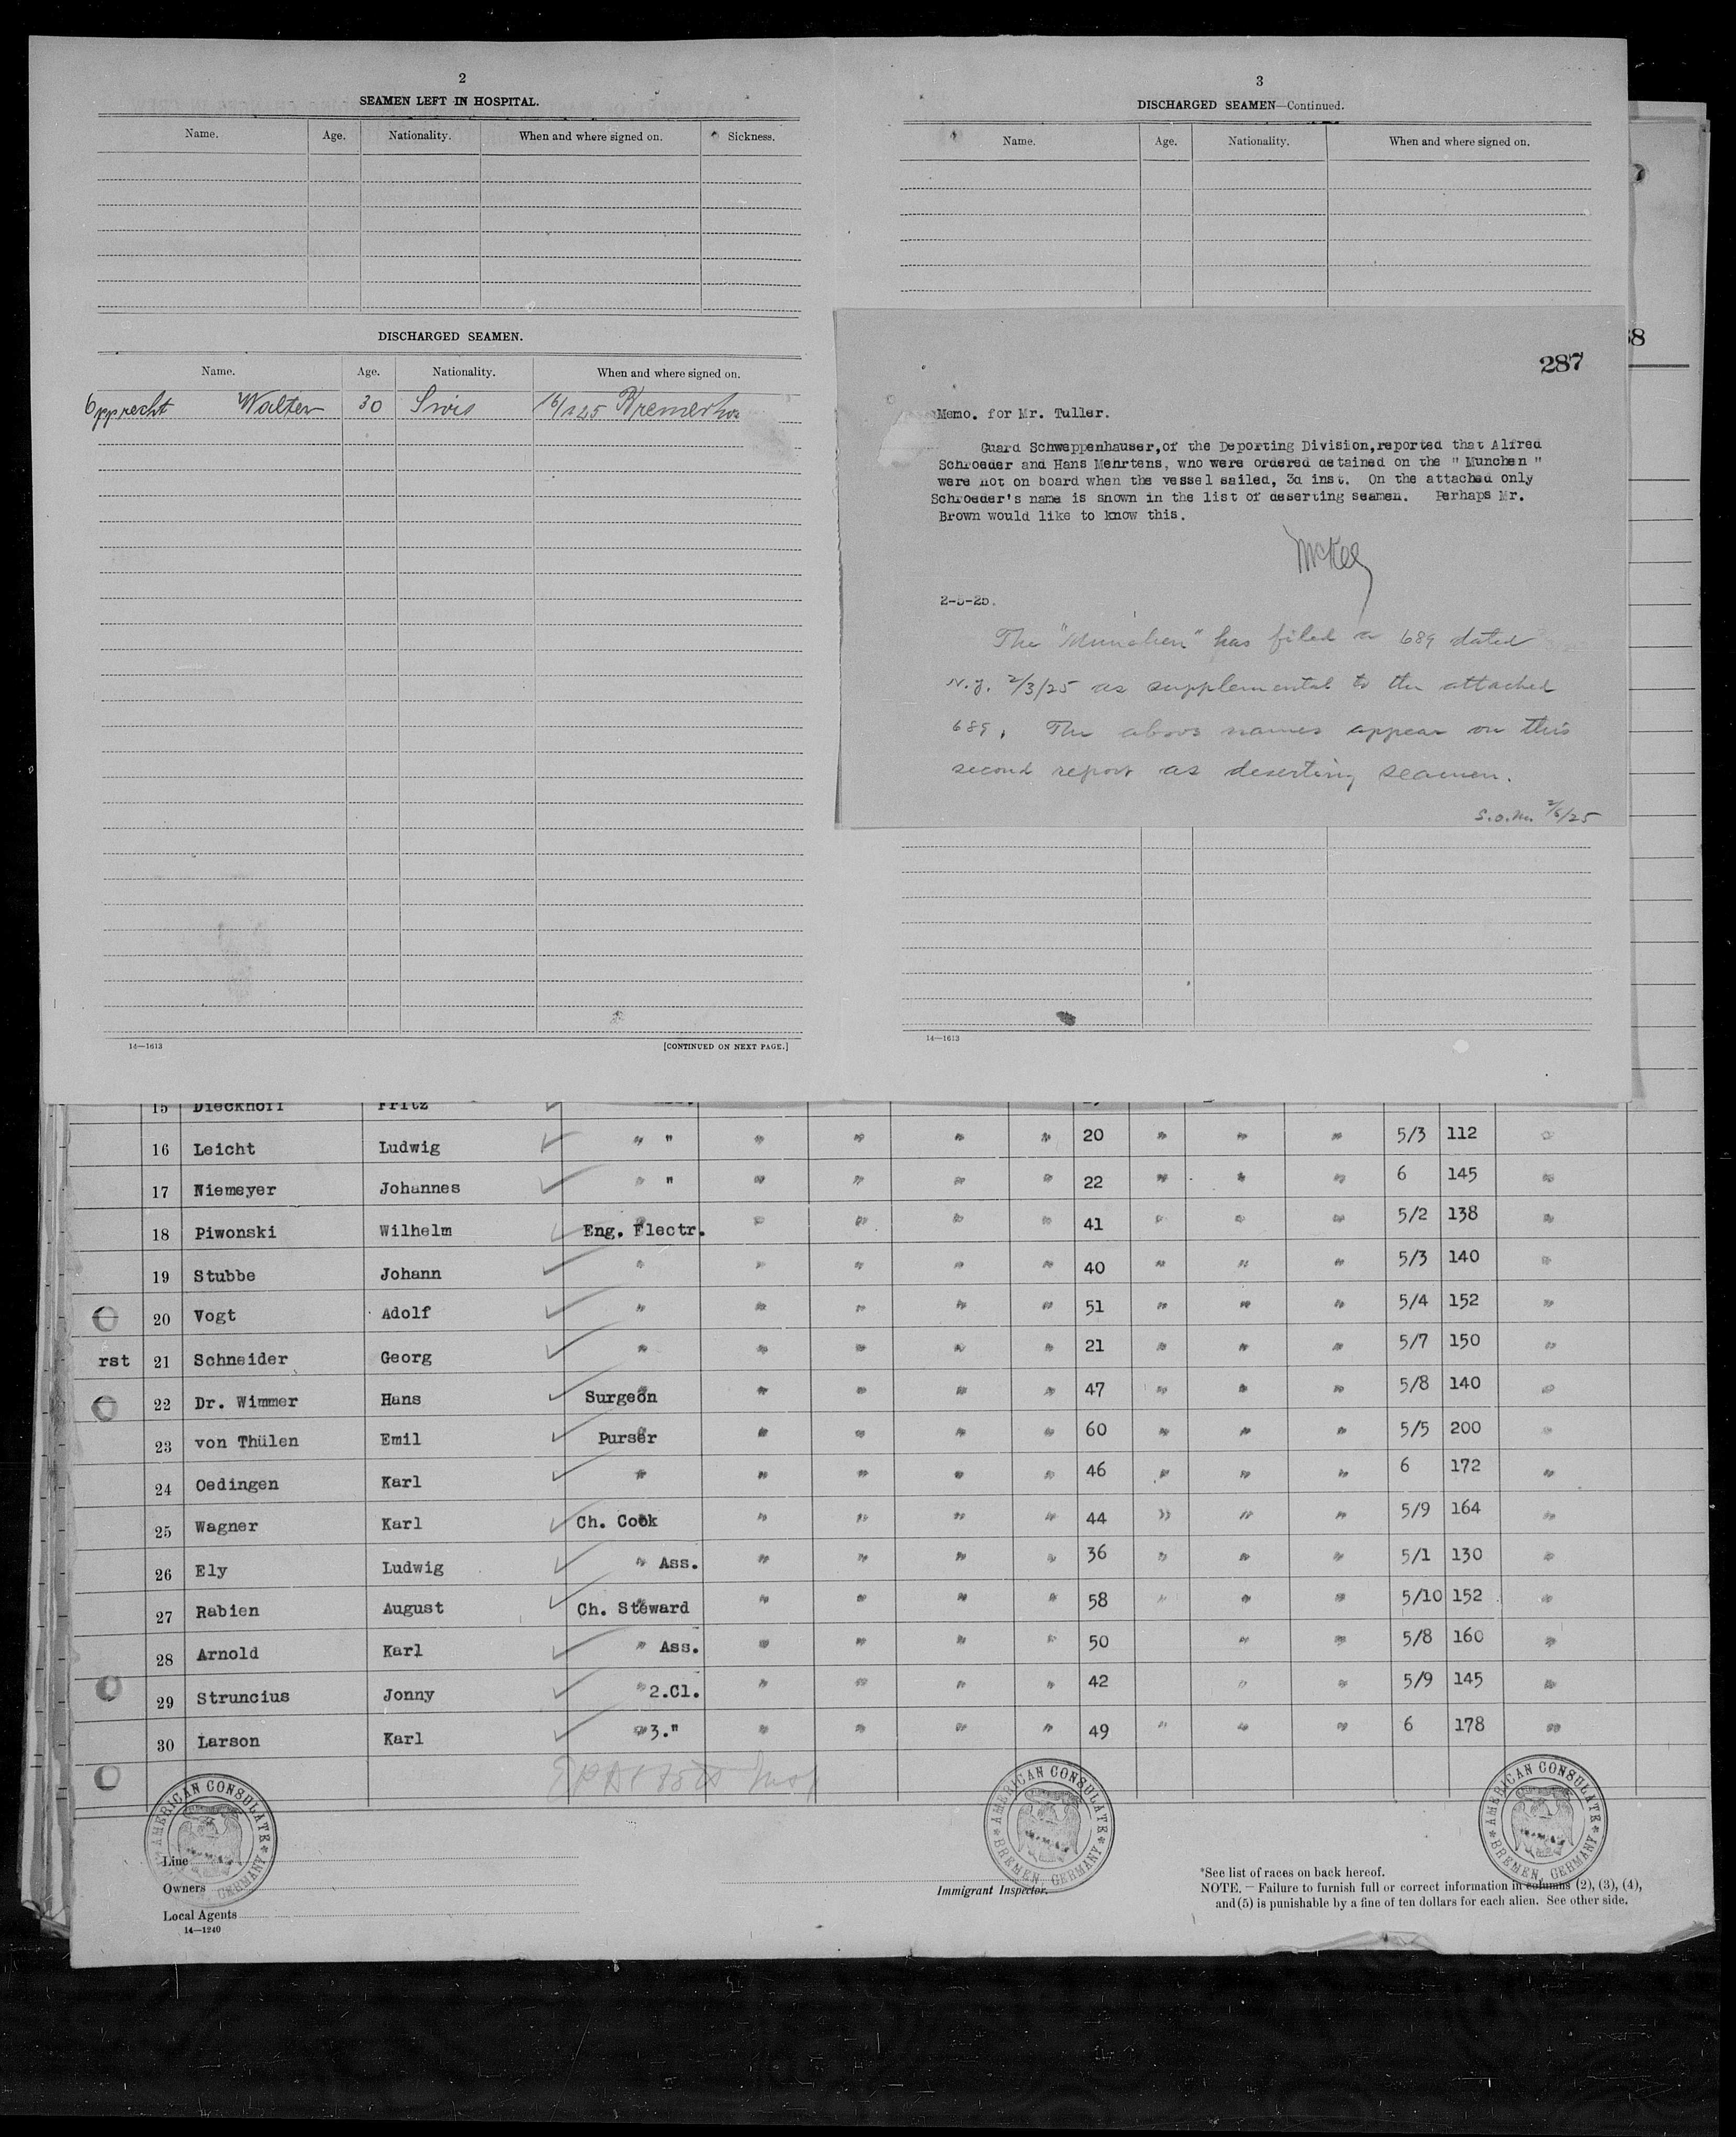 2
SEAMEN LEFT IN HOSPITAL.
Name. Age. Nationality. When and where signed on. Sickness.
DISCHARGED SEAMEN.
Name. Age. Nationality. When and where signed on.
Opprecht Walter 30 Swis 16/1 25 Bremerhv
14—1613 [CONTINUED ON NEXT PAGE.]
3
DISCHARGED SEAMEN—Continued.
Name. Age. Nationality. When and where signed on.
287
Memo. for Mr. Tuller.
Guard Schweppenhauser,of the Deporting Division,reported that Alfred
Schroeder and Hans Mehrtens, who were ordered detained on the " Munchen "
were not on board when the vessel sailed, 3d inst. On the attached only
Schroeder's name is shown in the list of deserting seamen. Perhaps Mr.
Brown would like to know this.
McKee
2-5-25.
The "Munchen" has filed a 689 dated
N.Y. 2/3/25 as supplemental to the attached
689. The above names appear on this
second report as deserting seamen.
S.O.M. 2/6/25
14—1613
8
15 Dieckhoff Fritz
16 Leicht Ludwig " " " " " " 20 " " " 5/3 112 "
17 Niemeyer Johannes " " " " " " 22 " " " 6 145 "
18 Piwonski Wilhelm Eng. Electr. " " " " 41 " " " 5/2 138 "
19 Stubbe Johann " " " " " 40 " " " 5/3 140 "
20 Vogt Adolf " " " " " 51 " " " 5/4 152 "
rst 21 Schneider Georg " " " " " 21 " " " 5/7 150 "
22 Dr. Wimmer Hans Surgeon " " " " 47 " " " 5/8 140 "
23 von Thülen Emil Purser " " " " 60 " " " 5/5 200 "
24 Oedingen Karl " " " " " 46 " " " 6 172 "
25 Wagner Karl Ch. Cook " " " " 44 " " " 5/9 164 "
26 Ely Ludwig " Ass. " " " " 36 " " " 5/1 130 "
27 Rabien August Ch. Steward " " " " 58 " " " 5/10 152 "
28 Arnold Karl " Ass. " " " " 50 " " 5/8 160 "
29 Struncius Jonny " 2.Cl. " " " " 42 " " 5/9 145 "
30 Larson Karl " 3." " " " " 49 " " " 6 178 "
AMERICAN CONSULATE GERMANY
AMERICAN CONSULATE BREMEN, GERMANY
AMERICAN CONSULATE BREMEN, GERMANY
Line
Owners
Local Agents
14—1240
Immigrant Inspector.
*See list of races on back hereof.
NOTE. — Failure to furnish full or correct information in columns (2), (3), (4),
and (5) is punishable by a fine of ten dollars for each alien. See other side.